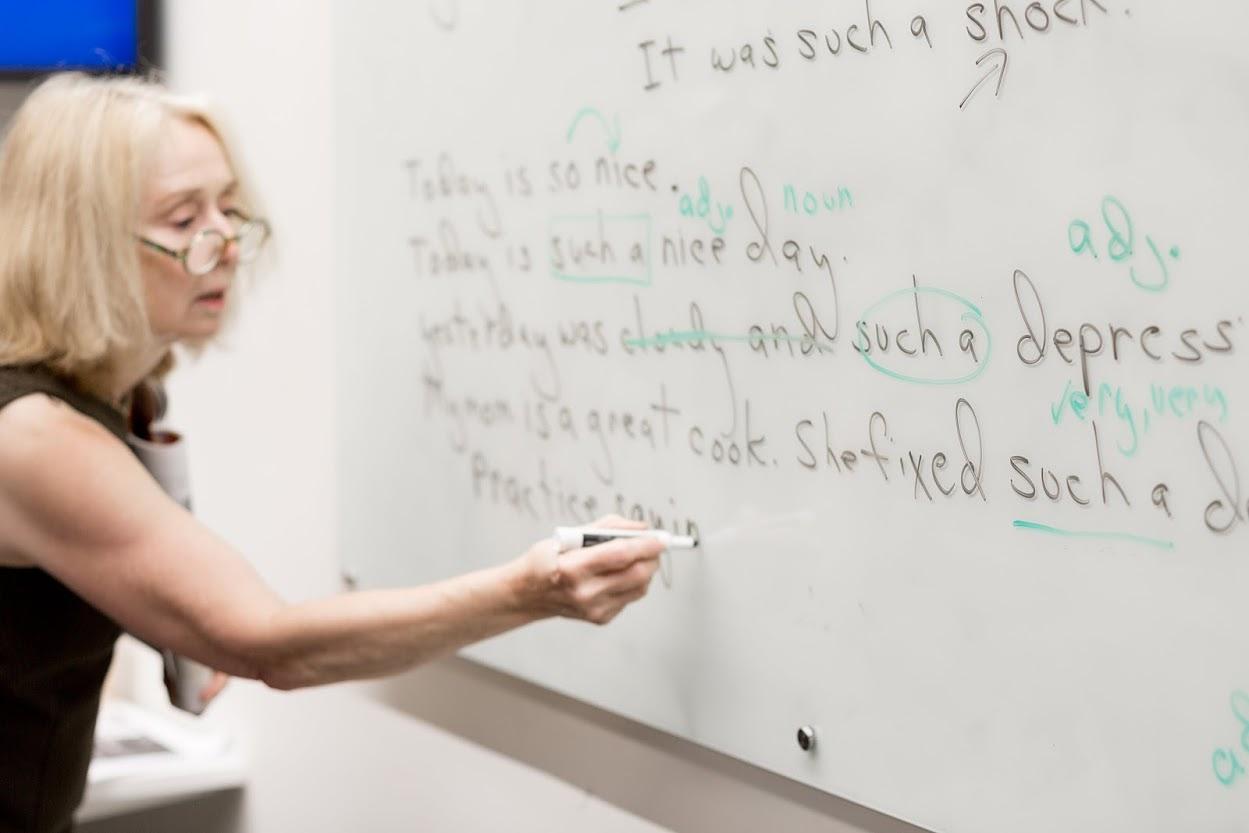 It was such a shock.
Today is so nice.
adj. noun
Today is such a nice day.
adj.
yesterday was cloudy and such a depress
very, very
Myron is a great cook. She fixed such a
Practice sayin